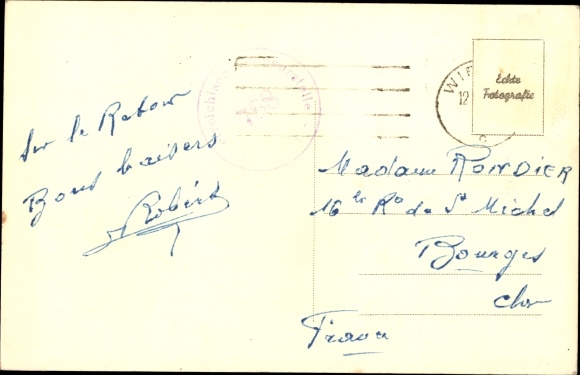 Sur le Retour
Bons baisers
Robert
WIE
12
Echte
Fotografie
Madame RONDIER
16 Rº de St Michel
Bourges
Cher
France